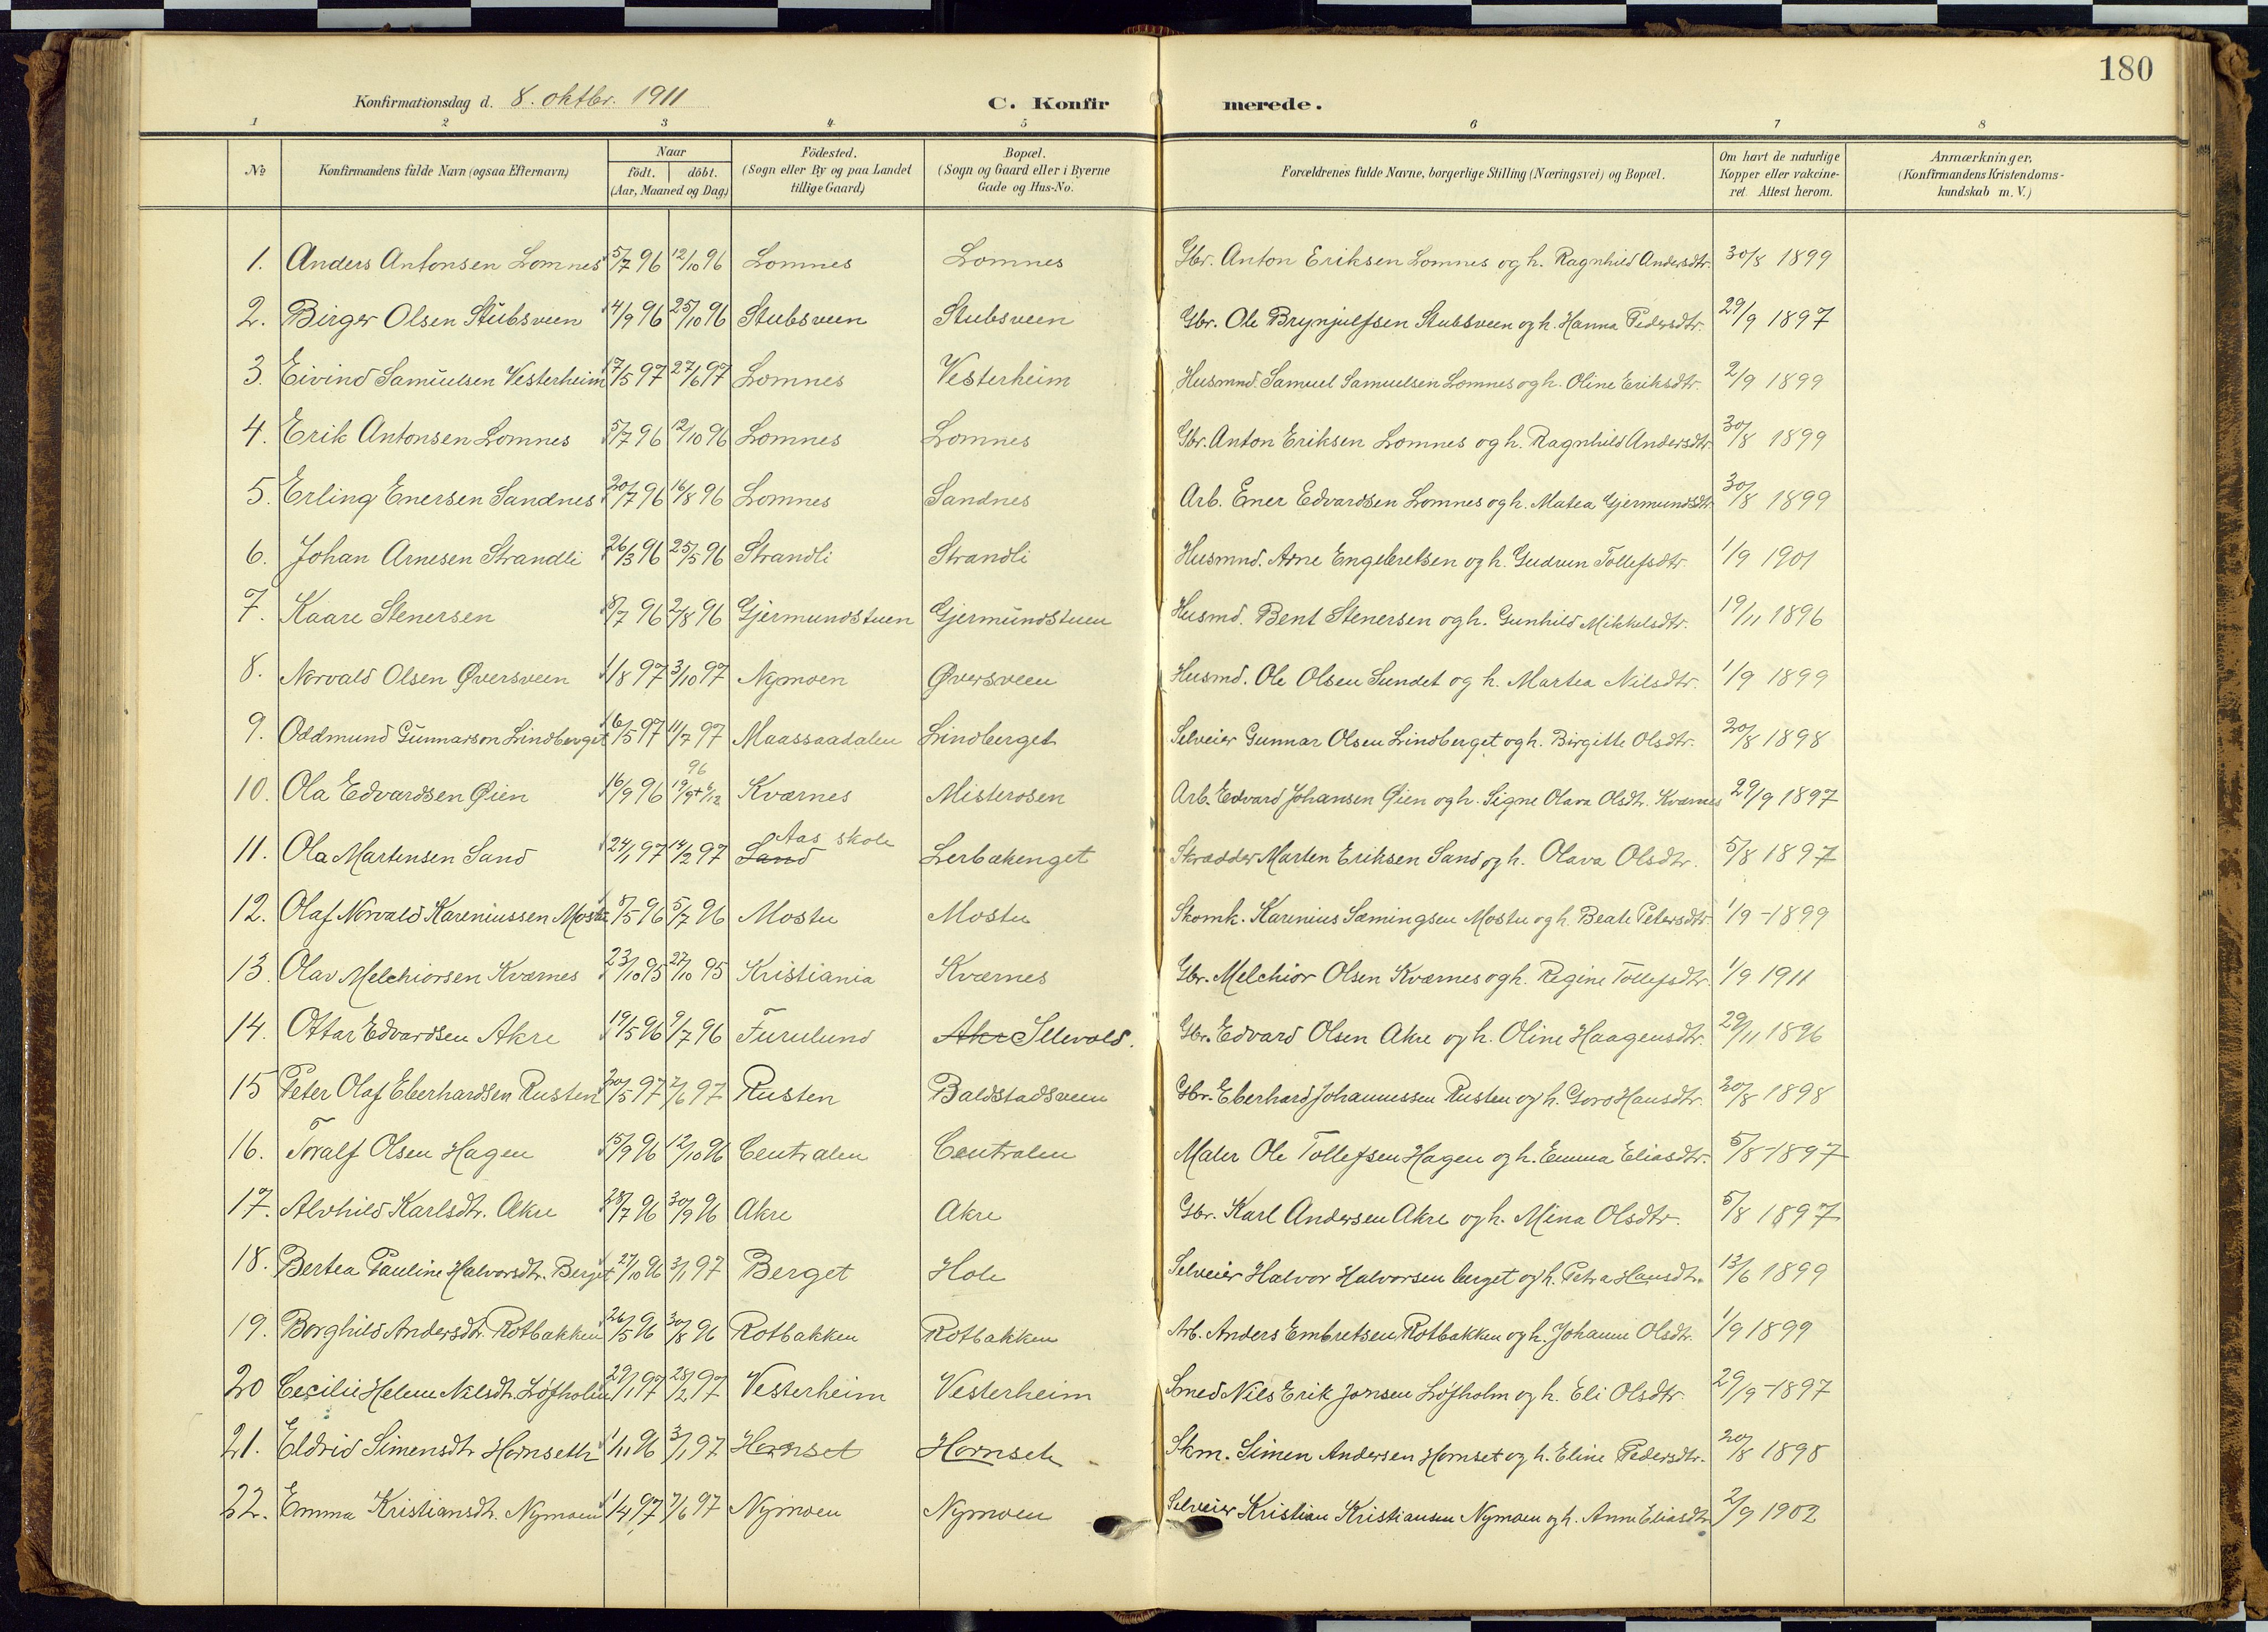 180
Konfirmationsdag d. 8. oktbr. 1911 C. Konfirmerede.
1 2 3 4 5 6 7 8
No Konfirmandens fulde Navn (ogsaa Efternavn) Naar födt. döbt. (Aar, Maaned og Dag) Födested. (Sogn eller By og paa Landet tillige Gaard) Bopæl. (Sogn og Gaard eller i Byerne Gade og Hus-No. Forældrenes fulde Navne, borgerlige Stilling (Næringsvei) og Bopæl. Om havt de naturlige Kopper eller vakcineret. Attest herom. Anmærkninger. (Konfirmandens Kristendomskundskab m. V.)
1. Anders Antonsen Lomnes 5/7 96 12/10 96 Lomnes Lomnes Gbr. Anton Eriksen Lomnes og h. Ragnhild Andersdtr. 30/8 1899
2. Birger Olsen Stubsveen 14/9 96 25/10 96 Stubsveen Stubsveen Gbr. Ole Brynjulfsen Stubsveen og h. Hanna Pedersdtr. 29/9 1897
3. Eivind Samuelsen Vesterheim 17/5 97 27/6 97 Lomnes Vesterheim Husmnd. Samuel Samuelsen Lomnes og h. Oline Eriksdtr. 2/9 1899
4. Erik Antonsen Lomnes 5/7 96 12/10 96 Lomnes Lomnes Gbr. Anton Eriksen Lomnes og h. Ragnhild Andersdtr. 30/8 1899
5. Erling Enersen Sandnes 20/7 96 16/8 96 Lomnes Sandnes Arb. Ener Edvardsen Lomnes og h. Matea Gjermundsdtr. 30/8 1899
6. Johan Arnesen Strandli 26/3 96 25/5 96 Strandli Strandli Husmnd. Arne Engebretsen og h. Gudrun Tollefsdtr. 1/9 1901
7. Kaare Stenersen 8/7 96 2/8 96 Gjermundstuen Gjermundstuen Husmd. Bent Stenersen og h. Gunhild Mikkelsdtr. 19/11 1896
8. Norvald Olsen Øversveen 1/8 97 3/10 97 Nymoen Øversveen Husmd. Ole Olsen Sundet og h. Martea Nilsdtr. 1/9 1899
9. Oddmund Gunnarson Lindberget 16/5 97 11/7 97 Maassaadalen Lindberget Selveier Gunnar Olsen Lindberget og h. Birgitte Olsdtr. 20/8 1898
96
10. Ola Edvardsen Øien 16/9 96 19/9 + 6/12 Kværnes Misterosen Arb. Edvard Johansen Øien og h. Signe Olava Olsdtr. Kværnes 29/9 1897
11. Ola Martensen Sand 24/1 97 14/2 97 Sand Aas skole Lerbakenget Skrædder Marten Eriksen Sand og h. Olava Olsdtr. 5/8 1897
12. Olaf Norvald Kareniussen Mostu 8/5 96 5/7 96 Mostu Mostu Skomk. Karenius Sæmingsen Mostu og h. Beate Petersdtr. 1/9 - 1899
13. Olav Melchiorsen Kværnes 23/10 95 27/10 95 Kristiania Kværnes Gbr. Melchior Olsen Kværnes og h. Regine Tollefsdtr. 1/9 1911
14. Ottar Edvardsen Akre 19/5 96 9/7 96 Furulund Akre Sllevold. Gbr. Edvard Olsen Akre og h. Oline Haagensdtr. 29/11 1896
15 Peter Olaf Eberhardsen Rusten 20/5 97 7/6 97 Rusten Baldstadsveen Gbr. Eberhard Johannessen Rusten og h. Goro Hansdtr. 20/8 1898
16. Toralf Olsen Hagen 15/9 96 12/10 96 Centralen Centralen Maler Ole Tollefsen Hagen og h. Emma Eliasdtr. 5/8 1897
17. Alvhild Karlsdtr. Akre 28/7 96 30/9 96 Akre Akre Gbr. Karl Andersen Akre og h. Mina Olsdtr. 5/8 1897
18. Bertea Pauline Halvorsdtr. Berget 27/10 96 3/1 97 Berget Hole Selveier Halvor Halvorsen berget og h. Petra Hansdtr. 13/6 1899
19. Borghild Andersdtr. Rotbakken 26/5 96 30/8 96 Rotbakken Rotbakken Arb. Anders Embretsen Rotbakken og h. Johanne Olsdtr. 1/9 1899
20 Cecilie Helene Nilsdtr. Löfholm 29/1 97 28/2 97 Vesterheim Vesterheim Smed Nils Erik Jonsen Löfholm og h. Eli Olsdtr. 29/9 - 1897
21. Eldrid Simensdtr Hornseth 1/11 96 3/1 97 Hornset Hornset Skm. Simen Andersen Hornset og h. Eline Pedersdtr. 20/8 1898
22. Emma Kristiansdtr. Nymoen 1/4 97 7/6 97 Nymoen Nymoen Selveier Kristian Kristiansen Nymoen og h. Anne Eliasdtr 2/9 1902